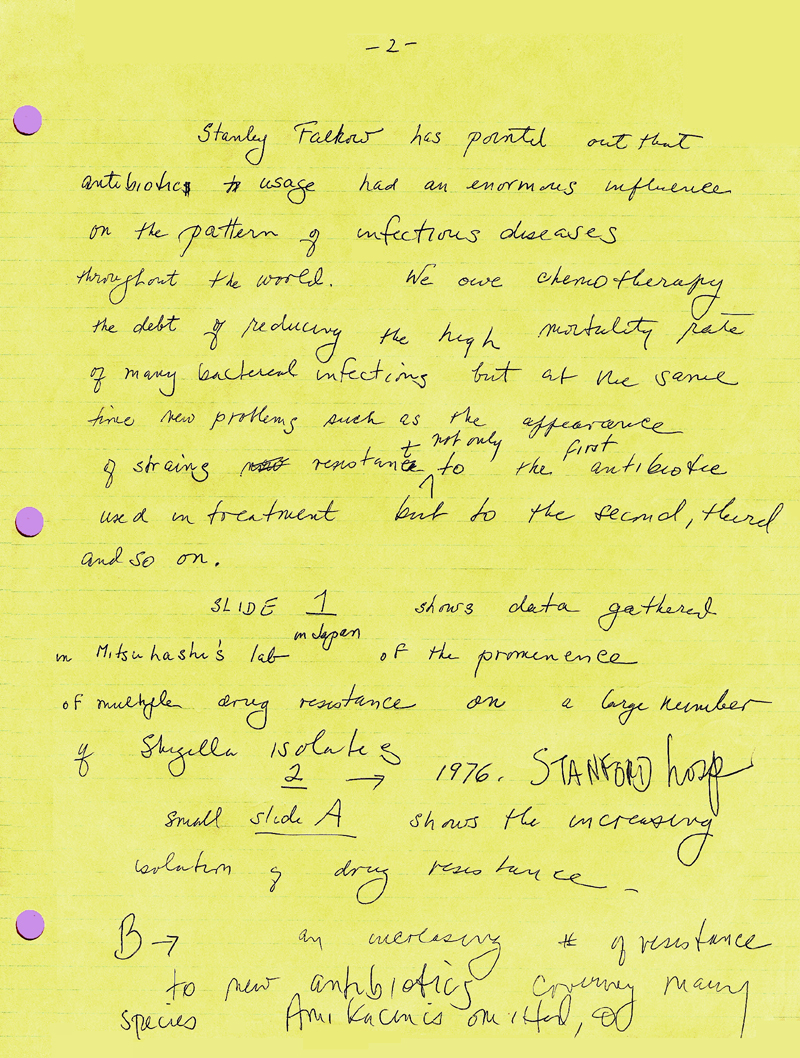 - 2 -
Stanley Falkow has pointed out that
antibiotics usage had an enormous influence
on the pattern of infectious diseases
throughout the world. We owe chemotherapy
the debt of reducing the high mortality rate
of many bacterial infections but at the same
time new problems such as the appearance
not only first
of strains resistant to the antibiotic
used in treatment but to the second, third
and so on.
SLIDE 1 shows data gathered
in Japan
in Mitsuhashi's lab of the prominence
of multiple drug resistance on a large number
of Shigella isolates
2 → 1976. STANFORD hosp
small slide A shows the increasing
isolation of drug resistance -
B → an increasing # of resistance
to new antibiotics covering many
species Amikacin is omitted,